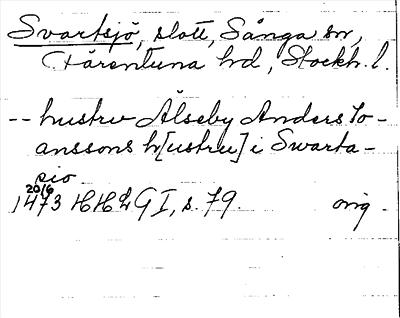 Svartsjö, slott, Sånga sn,
Färentuna hd, Stockh. l.
-- hustrv Ålseby Anders Jo-
anssons h[ustru] i Swarta-
sio
20/6
1473 HH2 G I, s. 79. orig.